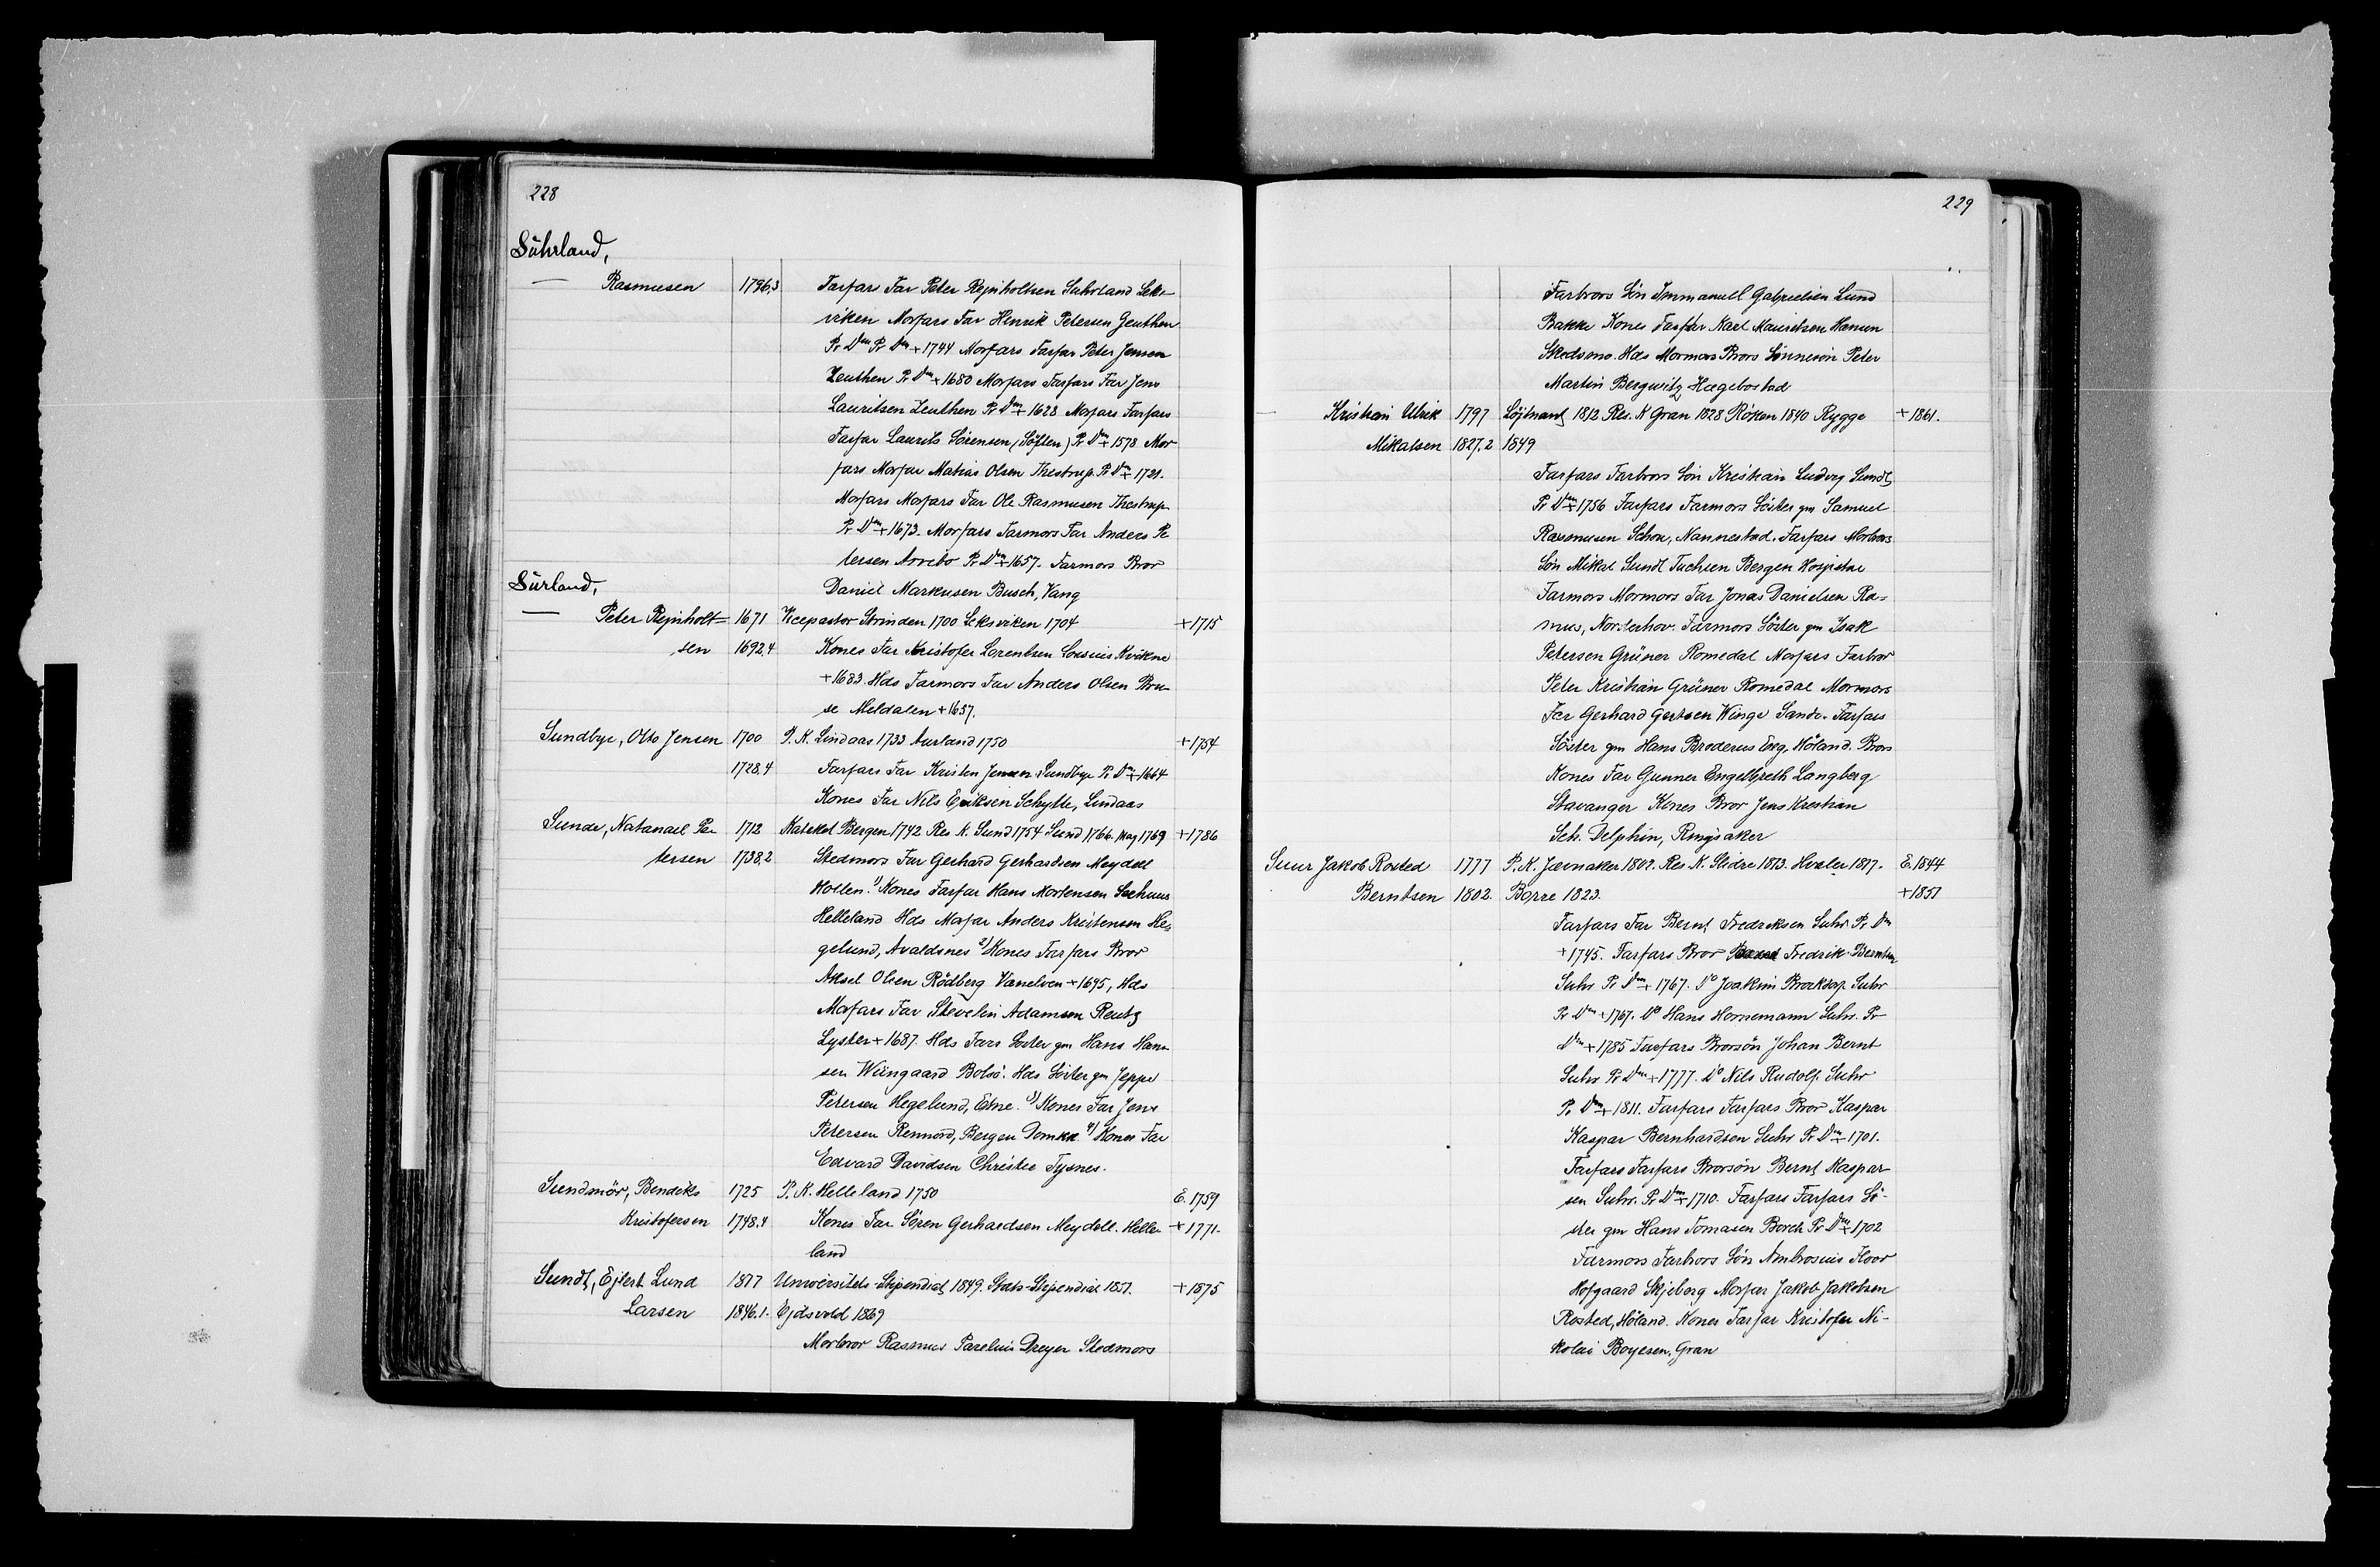 228
Suhrland,
— Rasmusen 1796.3 Farfars Far Peter Rejnholtsen Suhrland Leks-
viken Morfars Far Henrik Petersen Zeuthen
Pr Dm Pr Dm +1744 Morfars Farfar Peter Jensen
Zeuthen Pr Dm +1680 Morfars Farfars Far Jens
Lauritsen Zeuthen Pr Dm +1628 Morfars Farfars
Farfar Laurits Sörensen (Söften) Pr Dm +1578 Mor
fars Morfar Matias Olsen Thestrup. Pr Dm +1721.
Morfars Morfars Far Ole Rasmusen Thestrup
Pr Dm +1673. Morfars Farmors Far Anders Pe
tersen Arrebo Pr Dm +1657. Farmors Bror
Daniel Markusen Busch, Vang
Surland,
— Peter Rejnholt= 1671 Vicepastor Strinden 1700 Leksviken 1704 +1715
sen 1692.4 Kones Far Kristofer Lorentsen Kvikne
+1683. Hds Farmors Far Anders Olsen Bru-
se Meldalen +1637.
Sundbye, Otto Jensen 1700 P. K. Lindaas 1733 Aurland 1750 +1754
1728.4 Farfars Far Kristen Jensen Sundbye Pr Dm +1664
Kones Far Nils Eriksen Schytte, Lindaas
Sunde, Natanael Pe- 1712 Kateket Bergen 1742 Res K. Sund 1754 Sund 1766. Mag 1769 +1786
tersen 1738.2 Stedmors Far Gerhard Gerhardsen Meydell
Holten. 1) Kones Farfar Hans Mortensen Seehuus
Helleland Hds Morfar Anders Kristensen He-
gelund, Avaldsnes 2) Kones Farfars Bror
Aksel Olsen Rödberg Vanelven +1695, Hds
Morfars Far Stevelin Adamsen Reutz
Lyster +1687. Hds Fars Söster gm Hans Han-
sen Wiingaard Bolsö. Hds Söster gm Jeppe
Petersen Hegelund, Etne. 3) Kones Far Jens
Petersen Rennord, Bergen Domkk 4) Kones Far
Edvard Davidsen Christie Tysnes.
Sundmör, Bendiks 1725 P. K. Helleland 1750 E. 1759
Kristofersen 1748.4 Kones Far Sören Gerhardsen Meydell. Helle- +1771.
land
Sundt, Ejlert Lund 1817 Universitets-Stipendiat 1849. Stats-Stipendiat 1851. +1875
Larsen 1846.1. Ejdsvold 1869
Morbror Rasmus Parelius Dreyer Stedmors
229
Farbrors Sön Immanuel Gabrielsen Lund
Bakke Kones Farfar Karl Mauritsen Hansen
Skedsmo. Hds Mormors Brors Sönnesön Peter
Martin Bergwitz Hægebostad
— Kristian Ulrik 1797 Löjtnant 1812 Res. K Gran 1828 Röken 1840 Rygge +1861.
Mikalsen 1827.2 1849
Farfars Farbrors Sön Kristian Ludvig Sundt
Pr Dm +1756 Farfars Farmors Söster gm Samuel
Rasmusen Schou, Nannestad. Farfars Morbrors
Sön Mikal Sundt Tuchsen Bergen Hospital
Farmors Mormors Far Jonas Danielsen Ra=
mus, Norderhov. Farmors Söster gm Isak
Petersen Grüner Romedal Morfars Farbror
Peter Kristian Grüner Romedal Mormors
Far Gerhard Gertsen Winge Sande. Farfars
Söster gm Hans Broderus Eeg, Höland. Brors
Kones Far Gunner Engelbreth Langberg
Stavanger Kones Bror Jens Kristian
Seb. Delphin, Ringsaker
Suur Jakob Rosted 1777 P. K. Jævnaker 1802. Res K. Slidre 1813. Hvaler 1817. E. 1844
Berntsen 1802. Borre 1823. +1851
Farfars Far Bernt Fredriksen Suhr. Pr Dm
+1745. Farfars Bror Fredrik Berntsen
Suhr Pr Dm +1767. Do Joakim Brocksop. Suhr
Pr Dm +1767. Do Hans Hornemann Suhr. Pr
Dm +1785 Farfars Brorsön Johan Bernt
Suhr Pr Dm +1777. Do Nils Rudolf Suhr
Pr Dm +1811. Farfars Farfars Bror Kaspar
Kaspar Bernhardsen Suhr Pr Dm +1701.
Farfars Farfars Brorsön Bernt Kaspar
sen Suhr. Pr Dm +1710. Farfars Farfars Sö-
ster gm Hans Tomasen Borch Pr Dm +1702
Farmors Farbrors Sön Ambrosius Floor
Hofgaard Skjeberg Morfar Jakob Jakobsen
Rosted, Höland. Kones Farfar Kristofer Ni-
kolai Boyesen, Gran